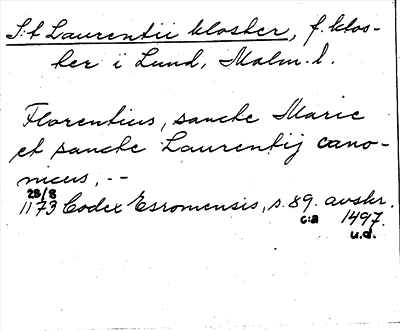 S:t Laurentii kloster, f. klos-
ter i Lund, Malm. l.
Florentius, sancte Marie
et sancte Laurentij cano-
nicus, --
28/8
1173 Codex Esromensis, s. 89. avskr.
c:a 1497.
u.d.